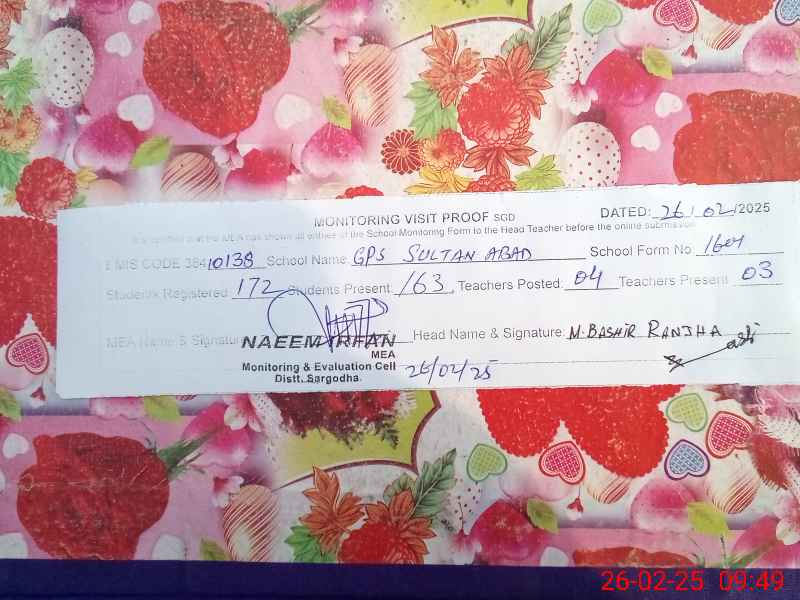 MONITORING VISIT PROOF SGD DATED: 26/02/2025
It is certified that the MEA has shown all entries of the School Monitoring Form to the Head Teacher before the online submission
EMIS CODE 38410138 School Name GPS SULTAN ABAD School Form No 1604
Students Registered: 172 Students Present: 163 Teachers Posted: 04 Teachers Present 03
MEA Name & Signature Head Name & Signature: M. BASHIR RANJHA
NAEEM IRFAN
MEA
Monitoring & Evaluation Cell
Distt. Sargodha.
26/02/25
26-02-25 09:49